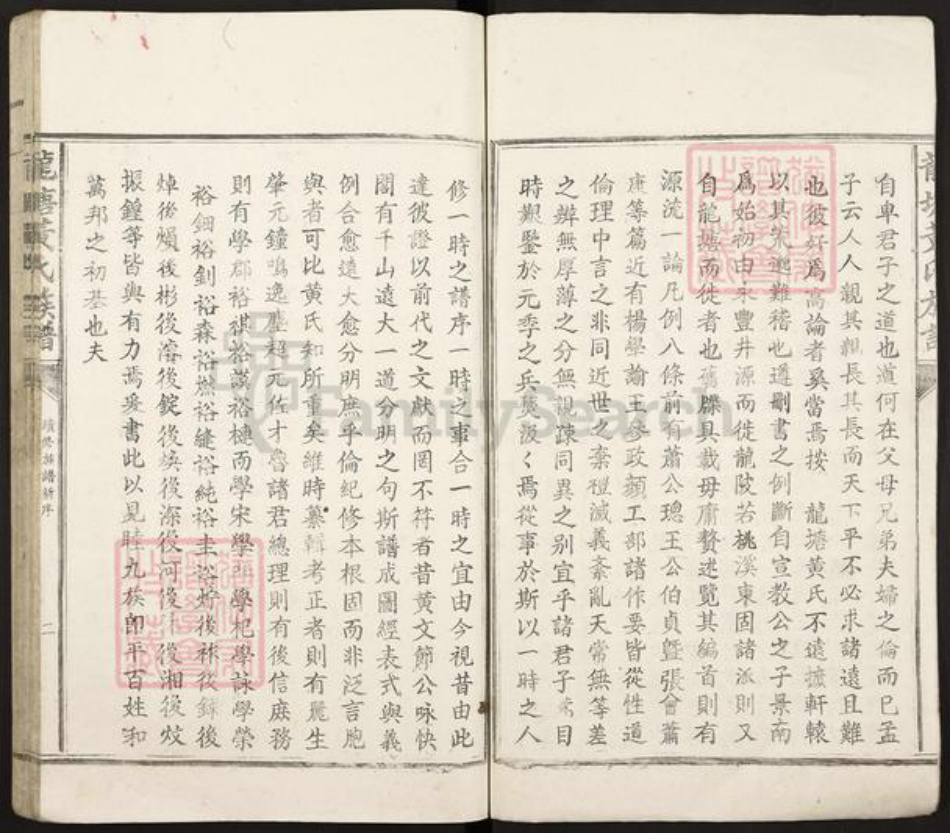 自卑君子之道也道何在父母兄弟夫婦之倫而已孟
子云人人親其親長其長而天下平不必求諸遠且難
也彼好爲高論者奚當焉按 龍塘黃氏不遠攄軒轅
以其荒邈難稽也遵刪書之例斷自宣教公之子景南
爲始初由永豐井源而徙龍陂若桃溪東固諸派則又
自龍塘而徙者也舊牒具載毋庸贅述覽其編首則有
源流一論凡例八條前有蕭公璁王公伯貞曁張會蕭
庚等篇近有楊學諭王參政顏工部諸作要皆從性道
倫理中言之非同近世之棄禮滅義紊亂天常無等差
之辨無厚薄之分無親疎同異之別宜乎諸君子目
時艱鑒於元季之兵燹汲く焉從事於斯以一時之人
修一時之譜序一時之事合一時之宜由今視昔由此
達彼證以前代之文獻而罔不符者昔黃文節公咏快
閣有千山遠大一道分明之句斯譜成圖經表式與義
例合愈遠大愈分明庶乎倫紀修本根固而非泛言胞
與者可比黃氏知所重矣維時纂輯考正者則有麗生
肇元鐘鳴逸塵超元佐才魯諸君總理則有後信庶務
則有學郡裕祺裕談裕槤而學宋學學杞學詠學榮
裕鈿裕釗裕森裕撫裕縫裕純裕圭裕貯後祿後錄後
焯後熉後彬後溶後錠後煥後深後河後後湘後炆
振鍠等皆與有力焉爰書此以見睦九族卽平百姓和
萬邦之初基也夫
龍塘黃氏族譜
續修族譜新序
二
龍塘黃氏族譜
FamilySearch